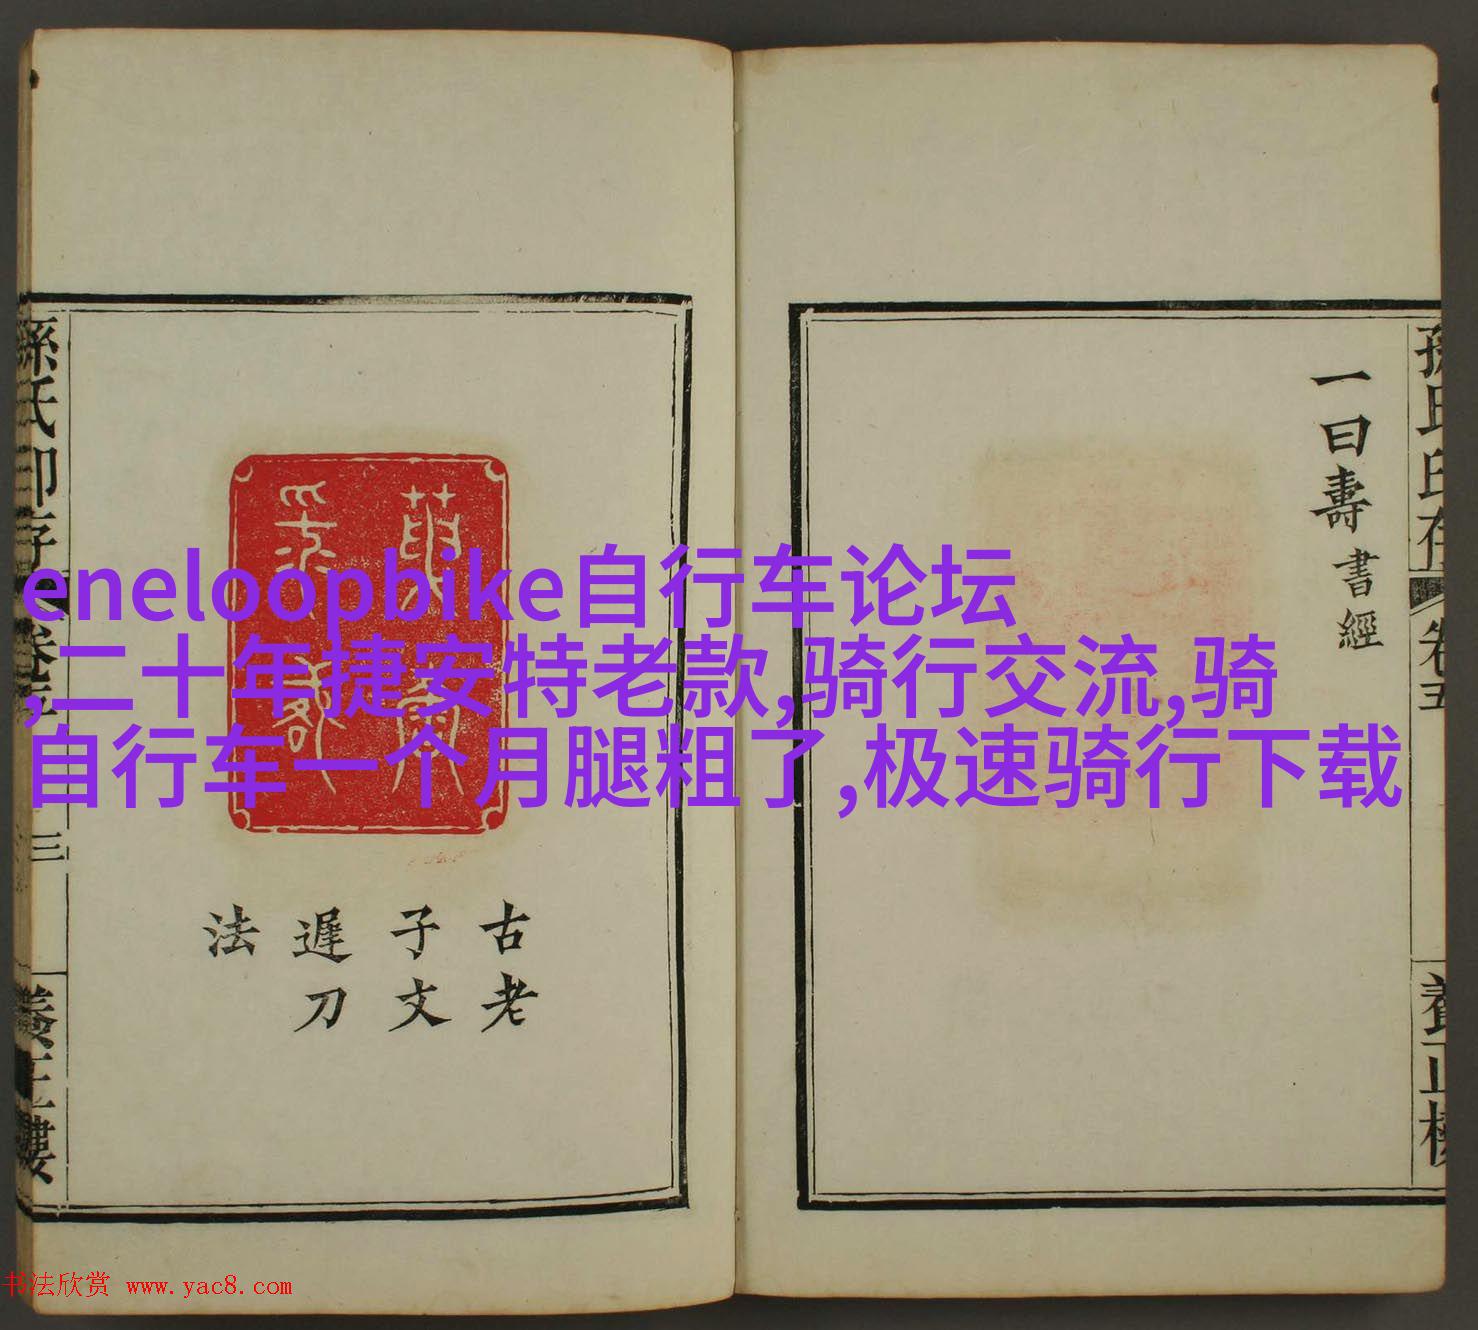 eneloopbike自行车论坛
,二十年捷安特老款,骑行交流,骑
自行车一个月腿粗了,极速骑行下载
一曰壽書經
卷五
養正樓
古老
子文
遲刀
法
三
書法欣赏 www.yac8.com